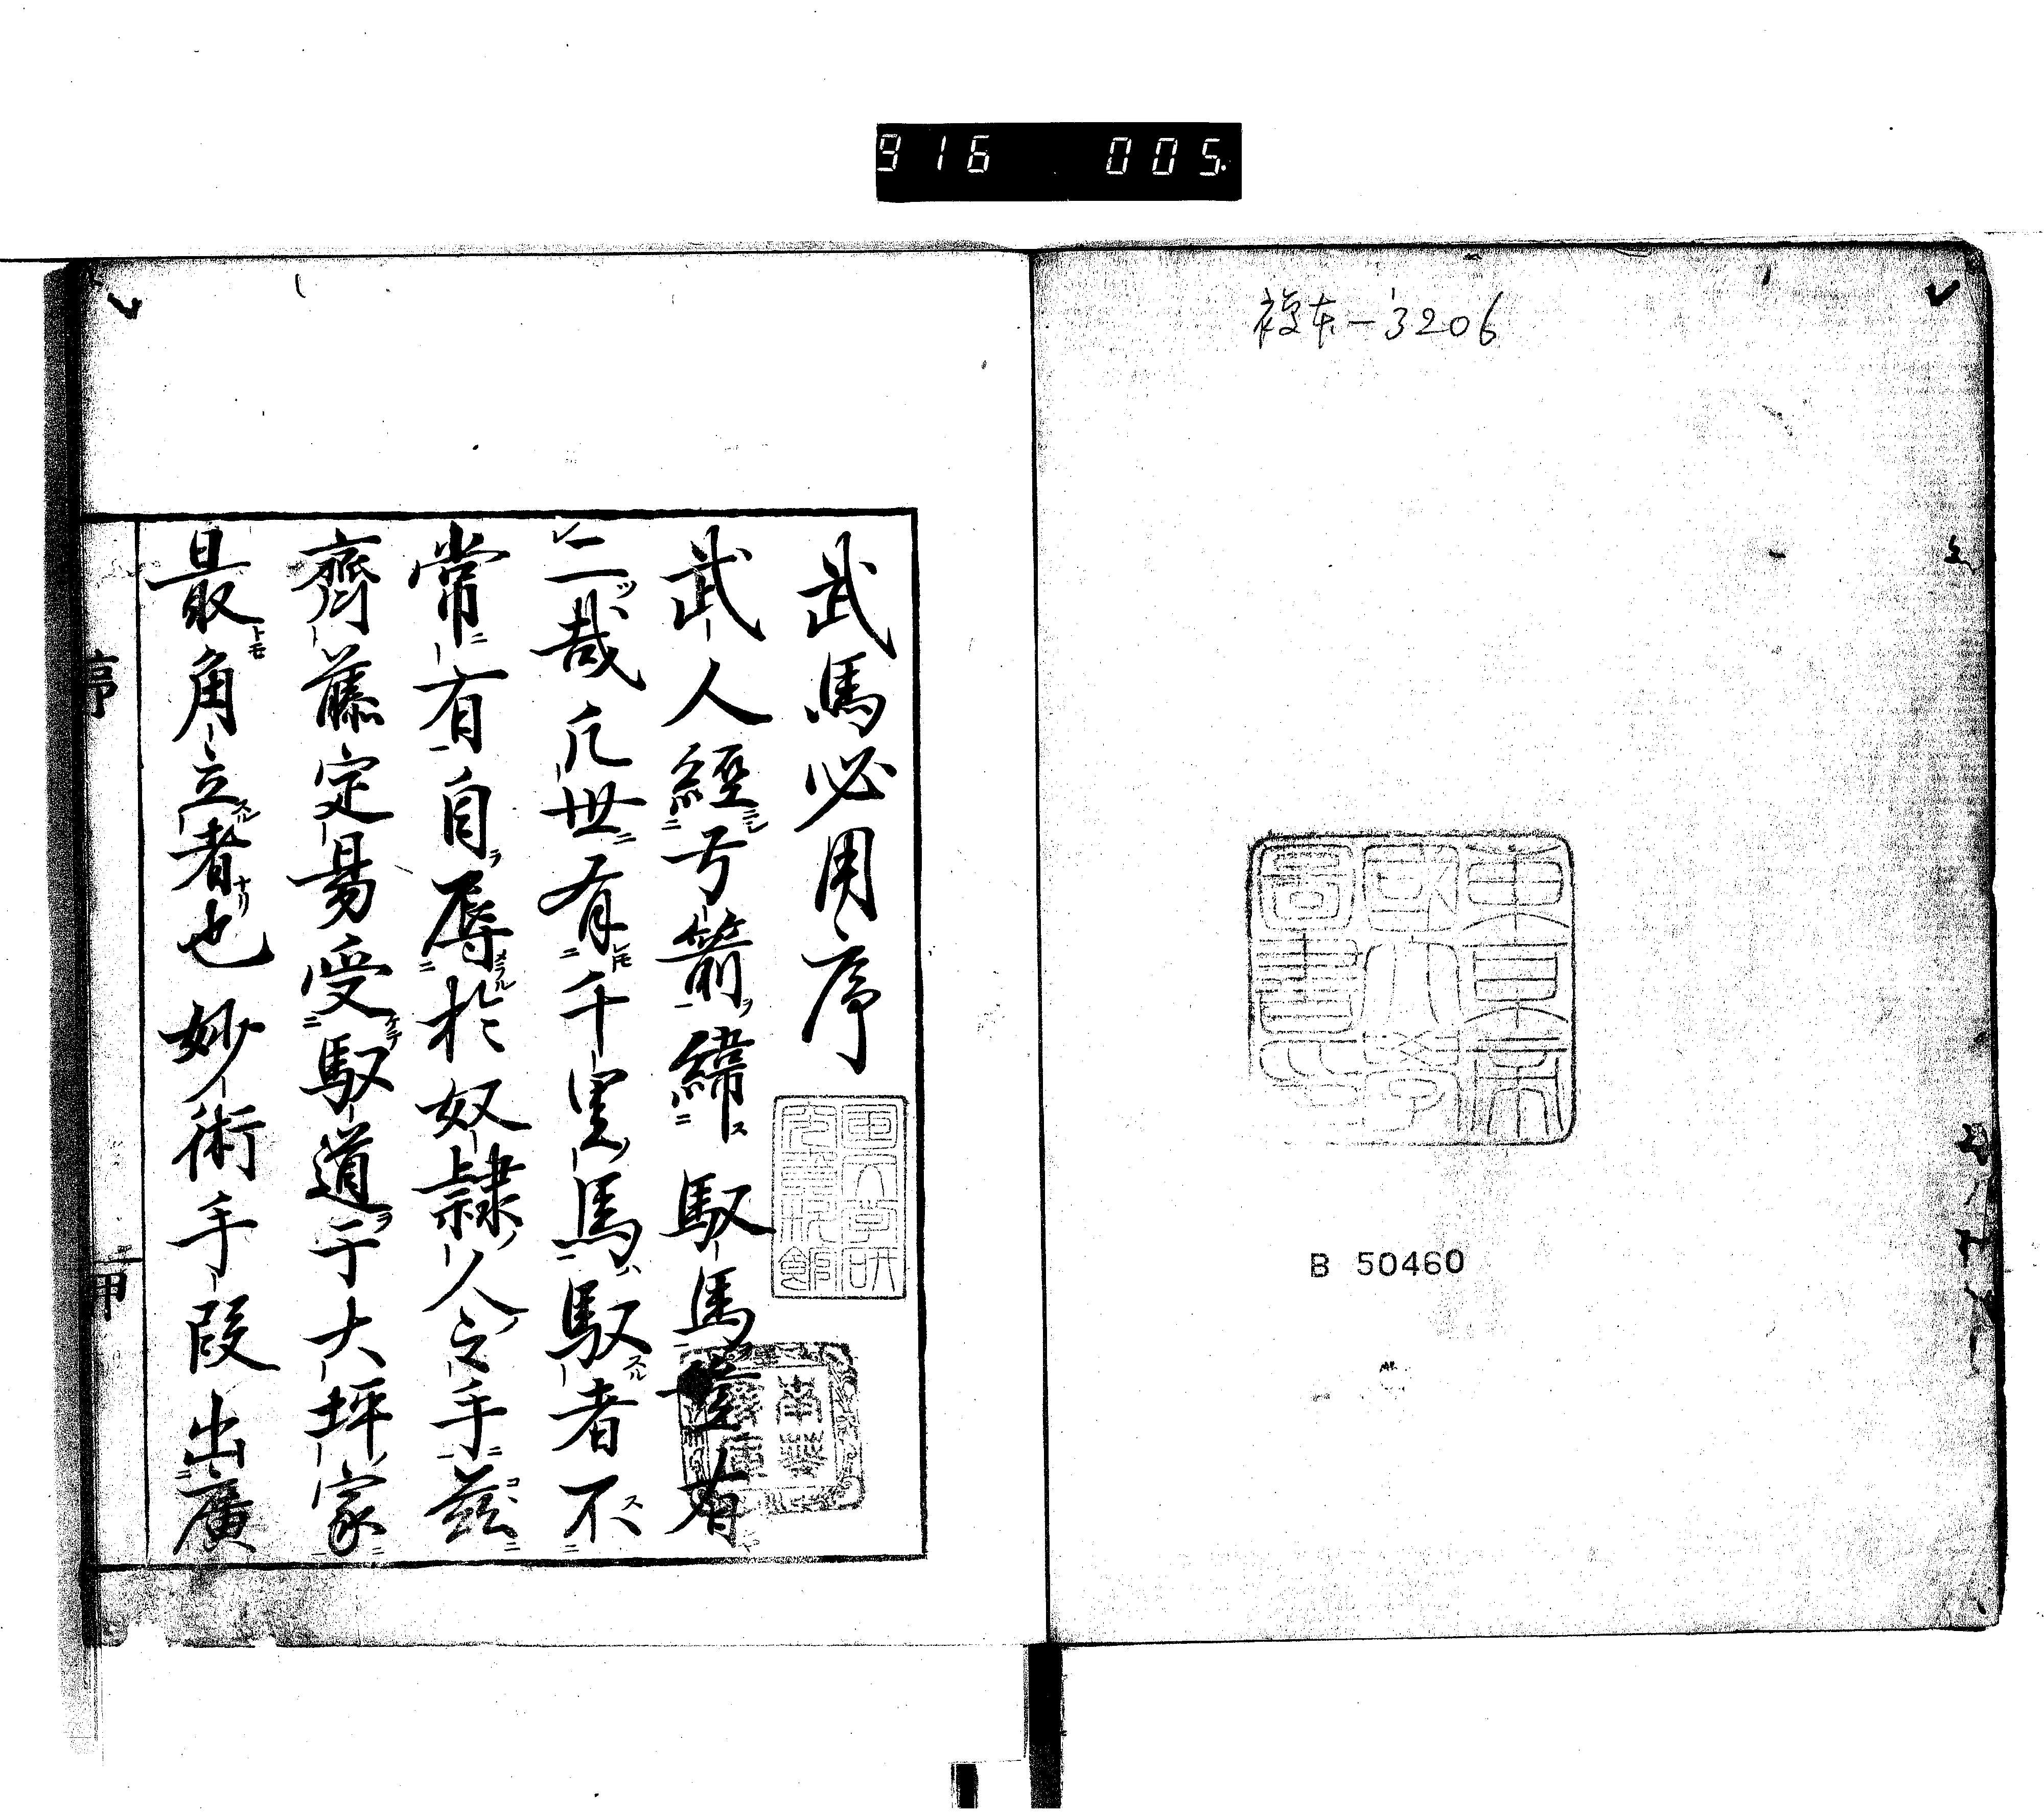 916 005.
複本-3206
東京帝
國大學
圖書印
B 50460
武馬必用序
武人經弓箭緯馭馬豈有
二哉凢世有千里馬馭者不
常有自辱於奴隷人之手茲
齊藤定易受馭道于大坪家
最角立者也妙術手段出廣
序